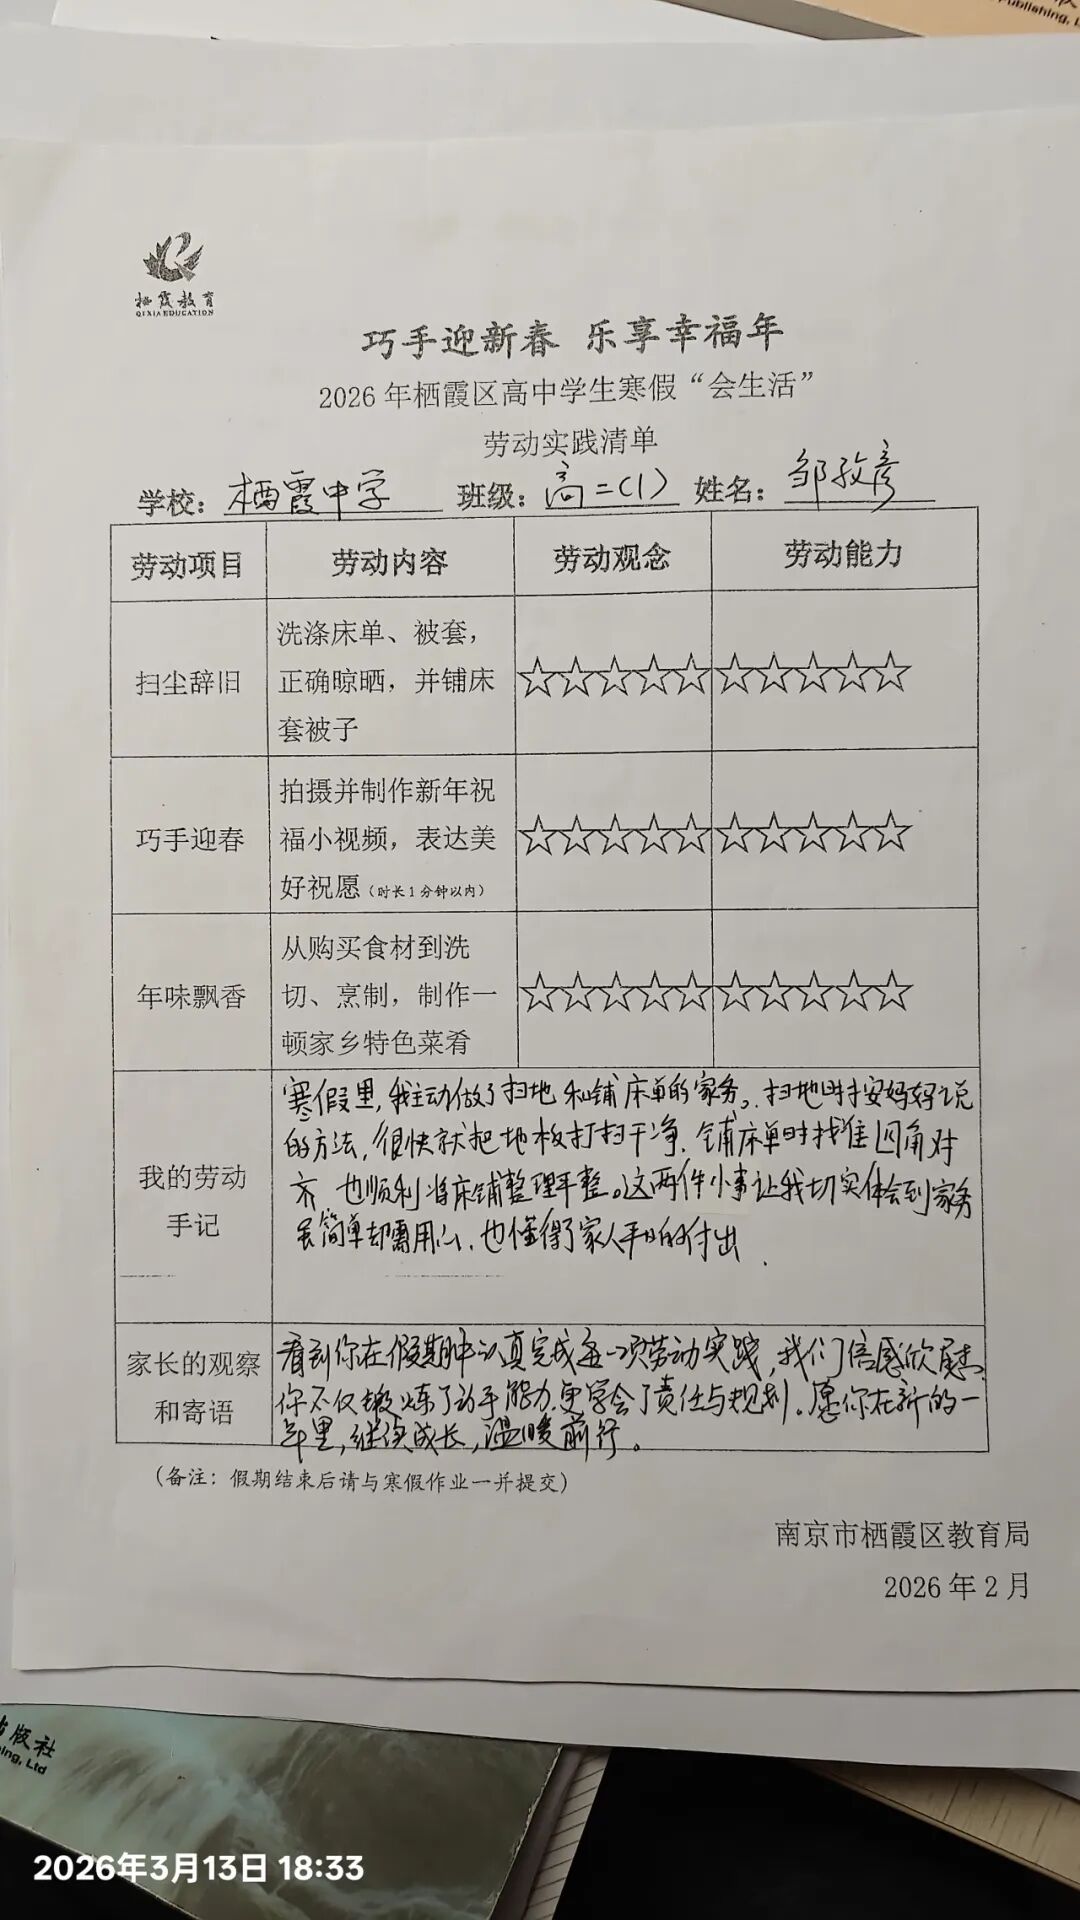 Publishing, L
栖霞教育
QIXIA EDUCATION
巧手迎新春 乐享幸福年
2026年栖霞区高中学生寒假“会生活”
劳动实践清单
学校：栖霞中学 班级：高二(1) 姓名：邹孜彦
劳动项目 劳动内容 劳动观念 劳动能力
扫尘辞旧
洗涤床单、被套，
正确晾晒，并铺床
套被子
☆☆☆☆☆ ☆☆☆☆☆
巧手迎春
拍摄并制作新年祝
福小视频，表达美
好祝愿（时长1分钟以内）
☆☆☆☆☆ ☆☆☆☆☆
年味飘香
从购买食材到洗
切、烹制，制作一
顿家乡特色菜肴
☆☆☆☆☆ ☆☆☆☆☆
我的劳动
手记
寒假里，我主动做了扫地和铺床单的家务。扫地时按妈妈说
的方法，很快就把地板打扫干净，铺床单时找准四角对
齐，也顺利将床铺整理平整。这两件小事让我切实体会到家务
虽简单却需用心，也懂得了家人平时的付出.
家长的观察
和寄语
看到你在假期中认真完成每一项劳动实践，我们倍感欣慰.
你不仅锻炼了动手能力，更学会了责任与规划。愿你在新的一
年里，继续成长，温暖前行。
（备注：假期结束后请与寒假作业一并提交）
南京市栖霞区教育局
2026年2月
版社
ing, Ltd
2026年3月13日 18:33